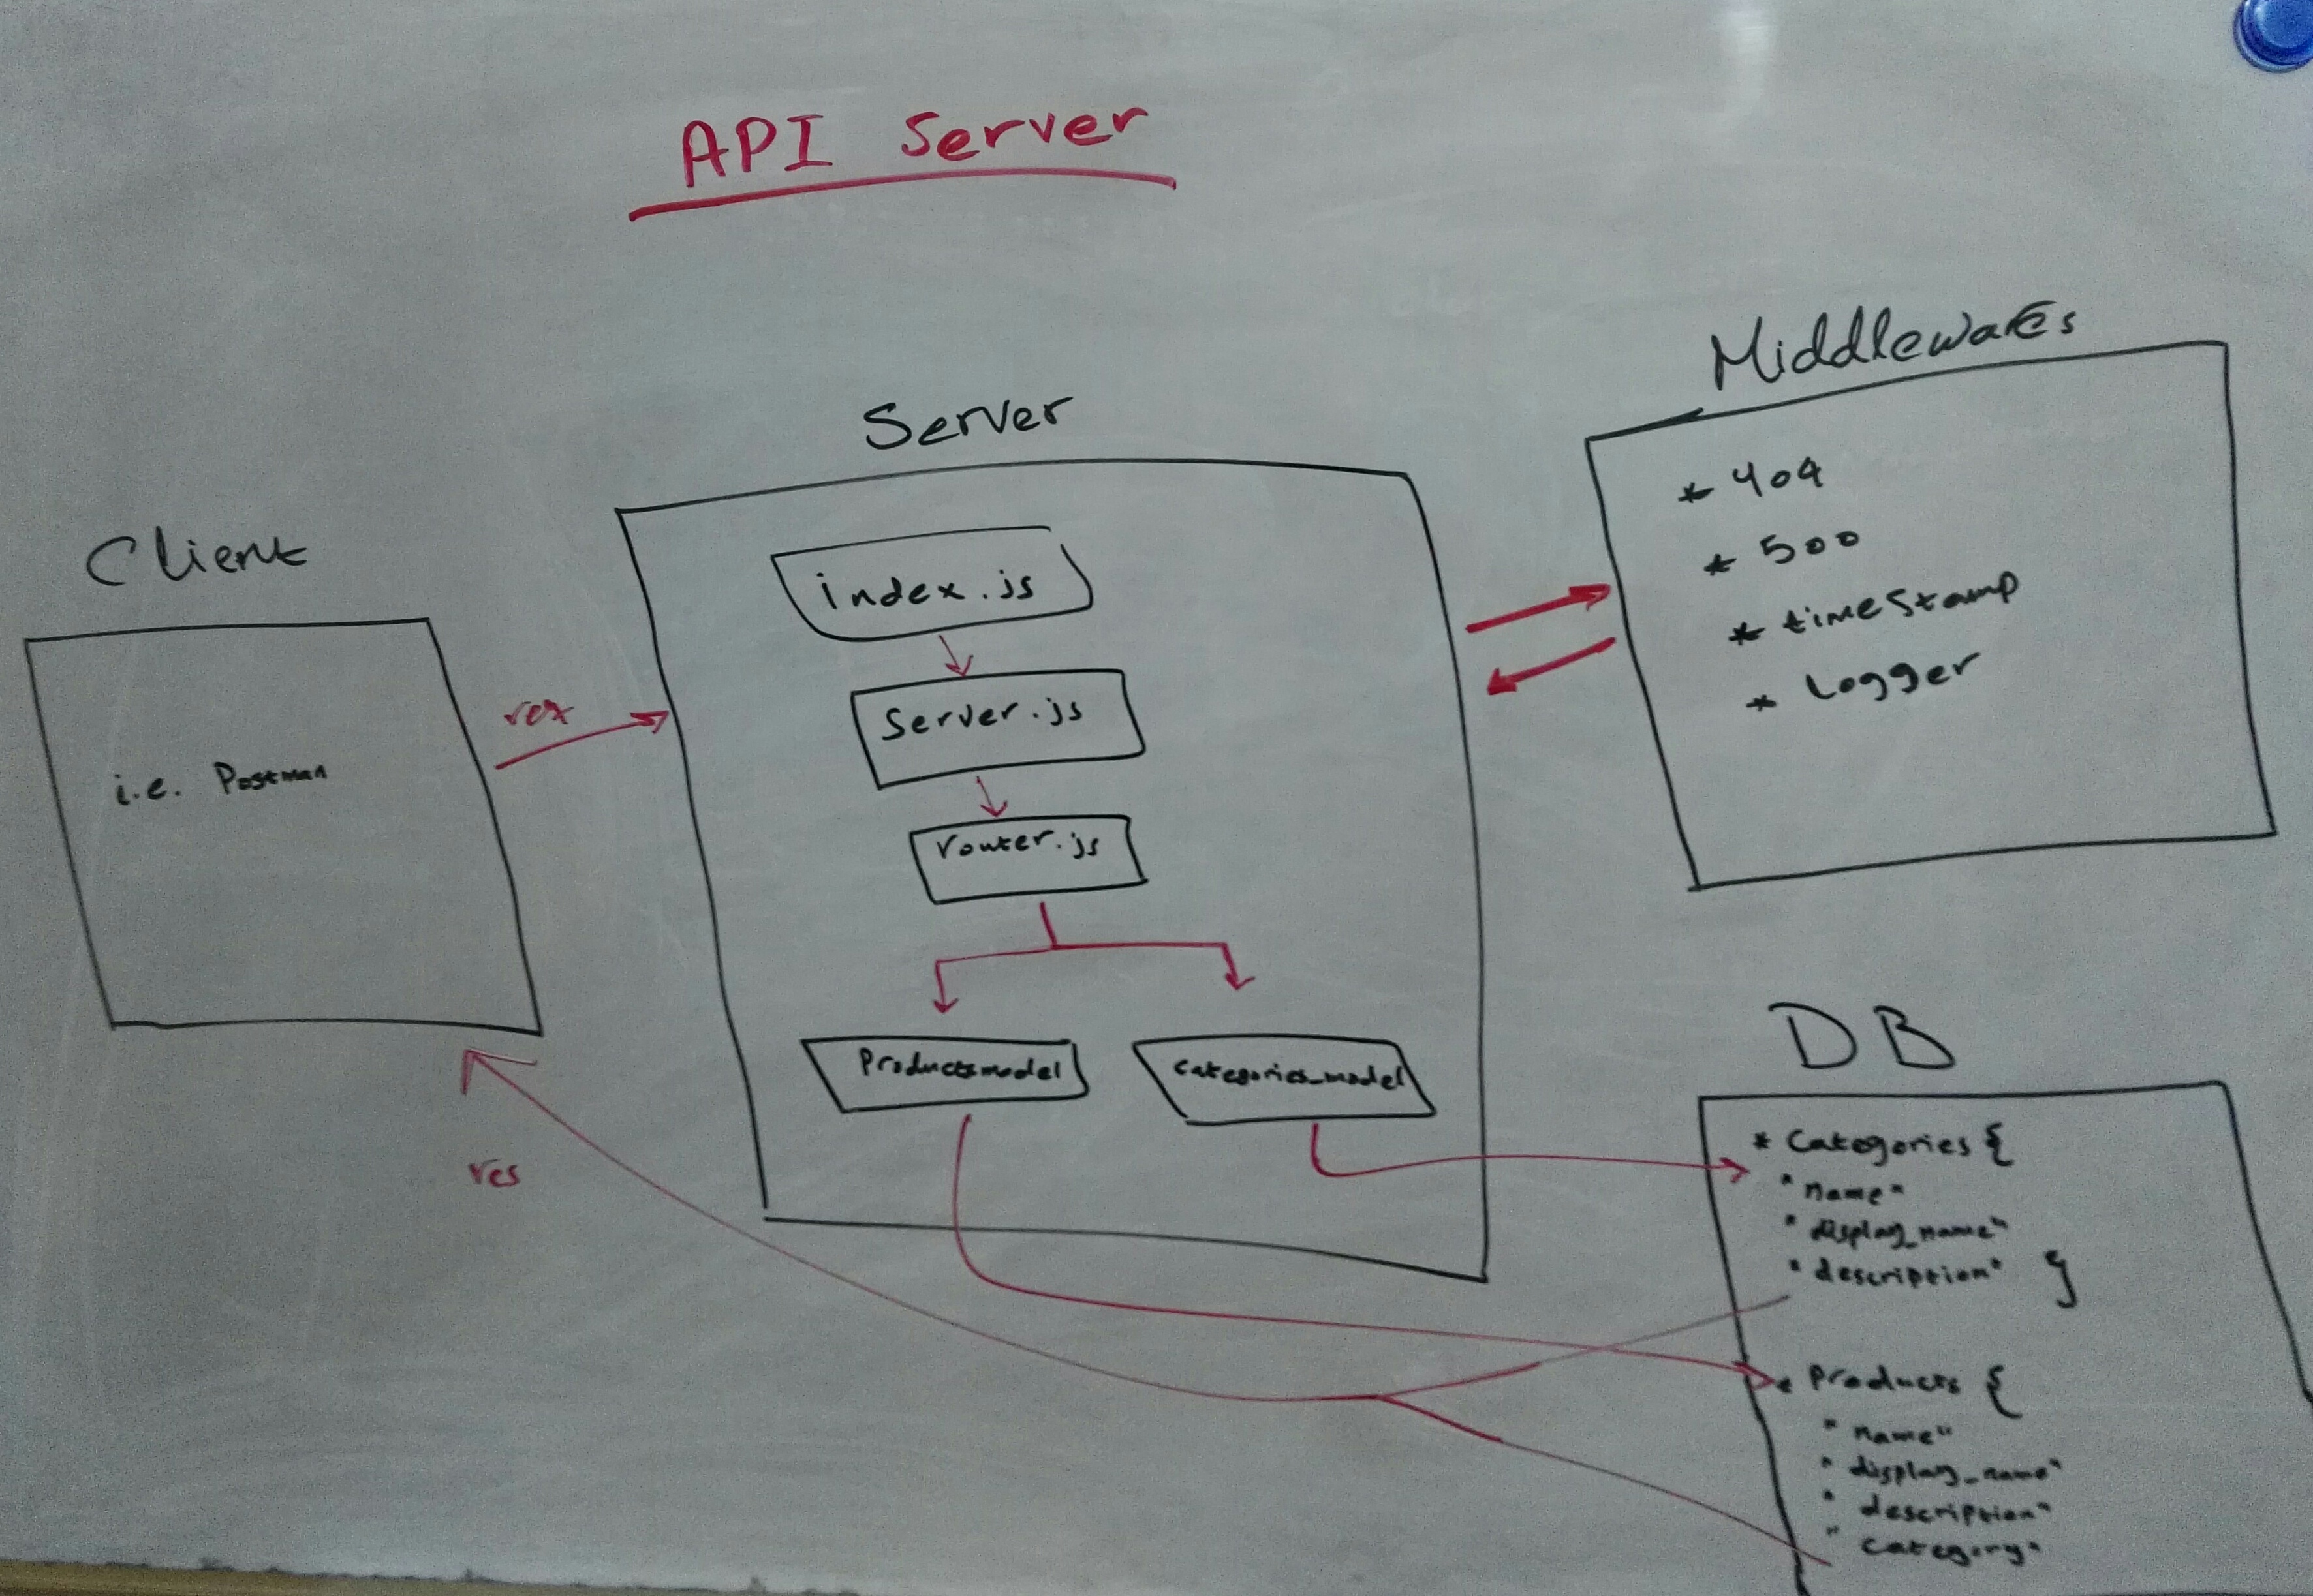 API Server
Client
i.e. Postman
req
res
Server
index.js
Server.js
router.js
Productsmodel
categories_model
Middlewares
* 404
* 500
* timeStamp
* Logger
DB
* Categories {
"name"
"display_name"
"description" }
* Products {
"name"
"display_name"
"description"
"category"